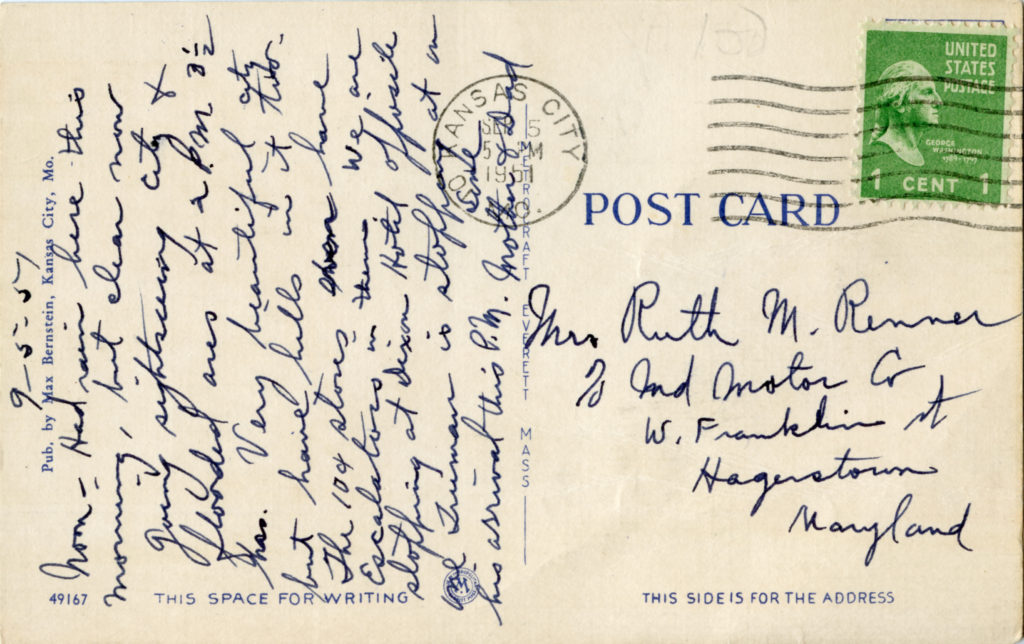 9-5-51
Noon - Had rain here this
morning, but clear now
Going sightseeing City &
flooded area at 2 P.M. 3½
hrs. Very beautiful city
but have hills in it too.
The 10¢ stores have
Escalators in them We are
stopping at Dixon Hotel opposite
Truman is stopping at on
his arrival this P.M. Mother & Dad
Love
Pub. by Max Bernstein, Kansas City, Mo.
49167
THIS SPACE FOR WRITING
METROCRAFT EVERETT MASS
KANSAS CITY
SEP 5
PM
1951
MO.
UNITED
STATES
POSTAGE
GEORGE
WASHINGTON
1789-1797
1 CENT 1
POST CARD
Mrs Ruth M. Renner
% Md Motor Co
W. Franklin st
Hagerstown
Maryland
THIS SIDE IS FOR THE ADDRESS